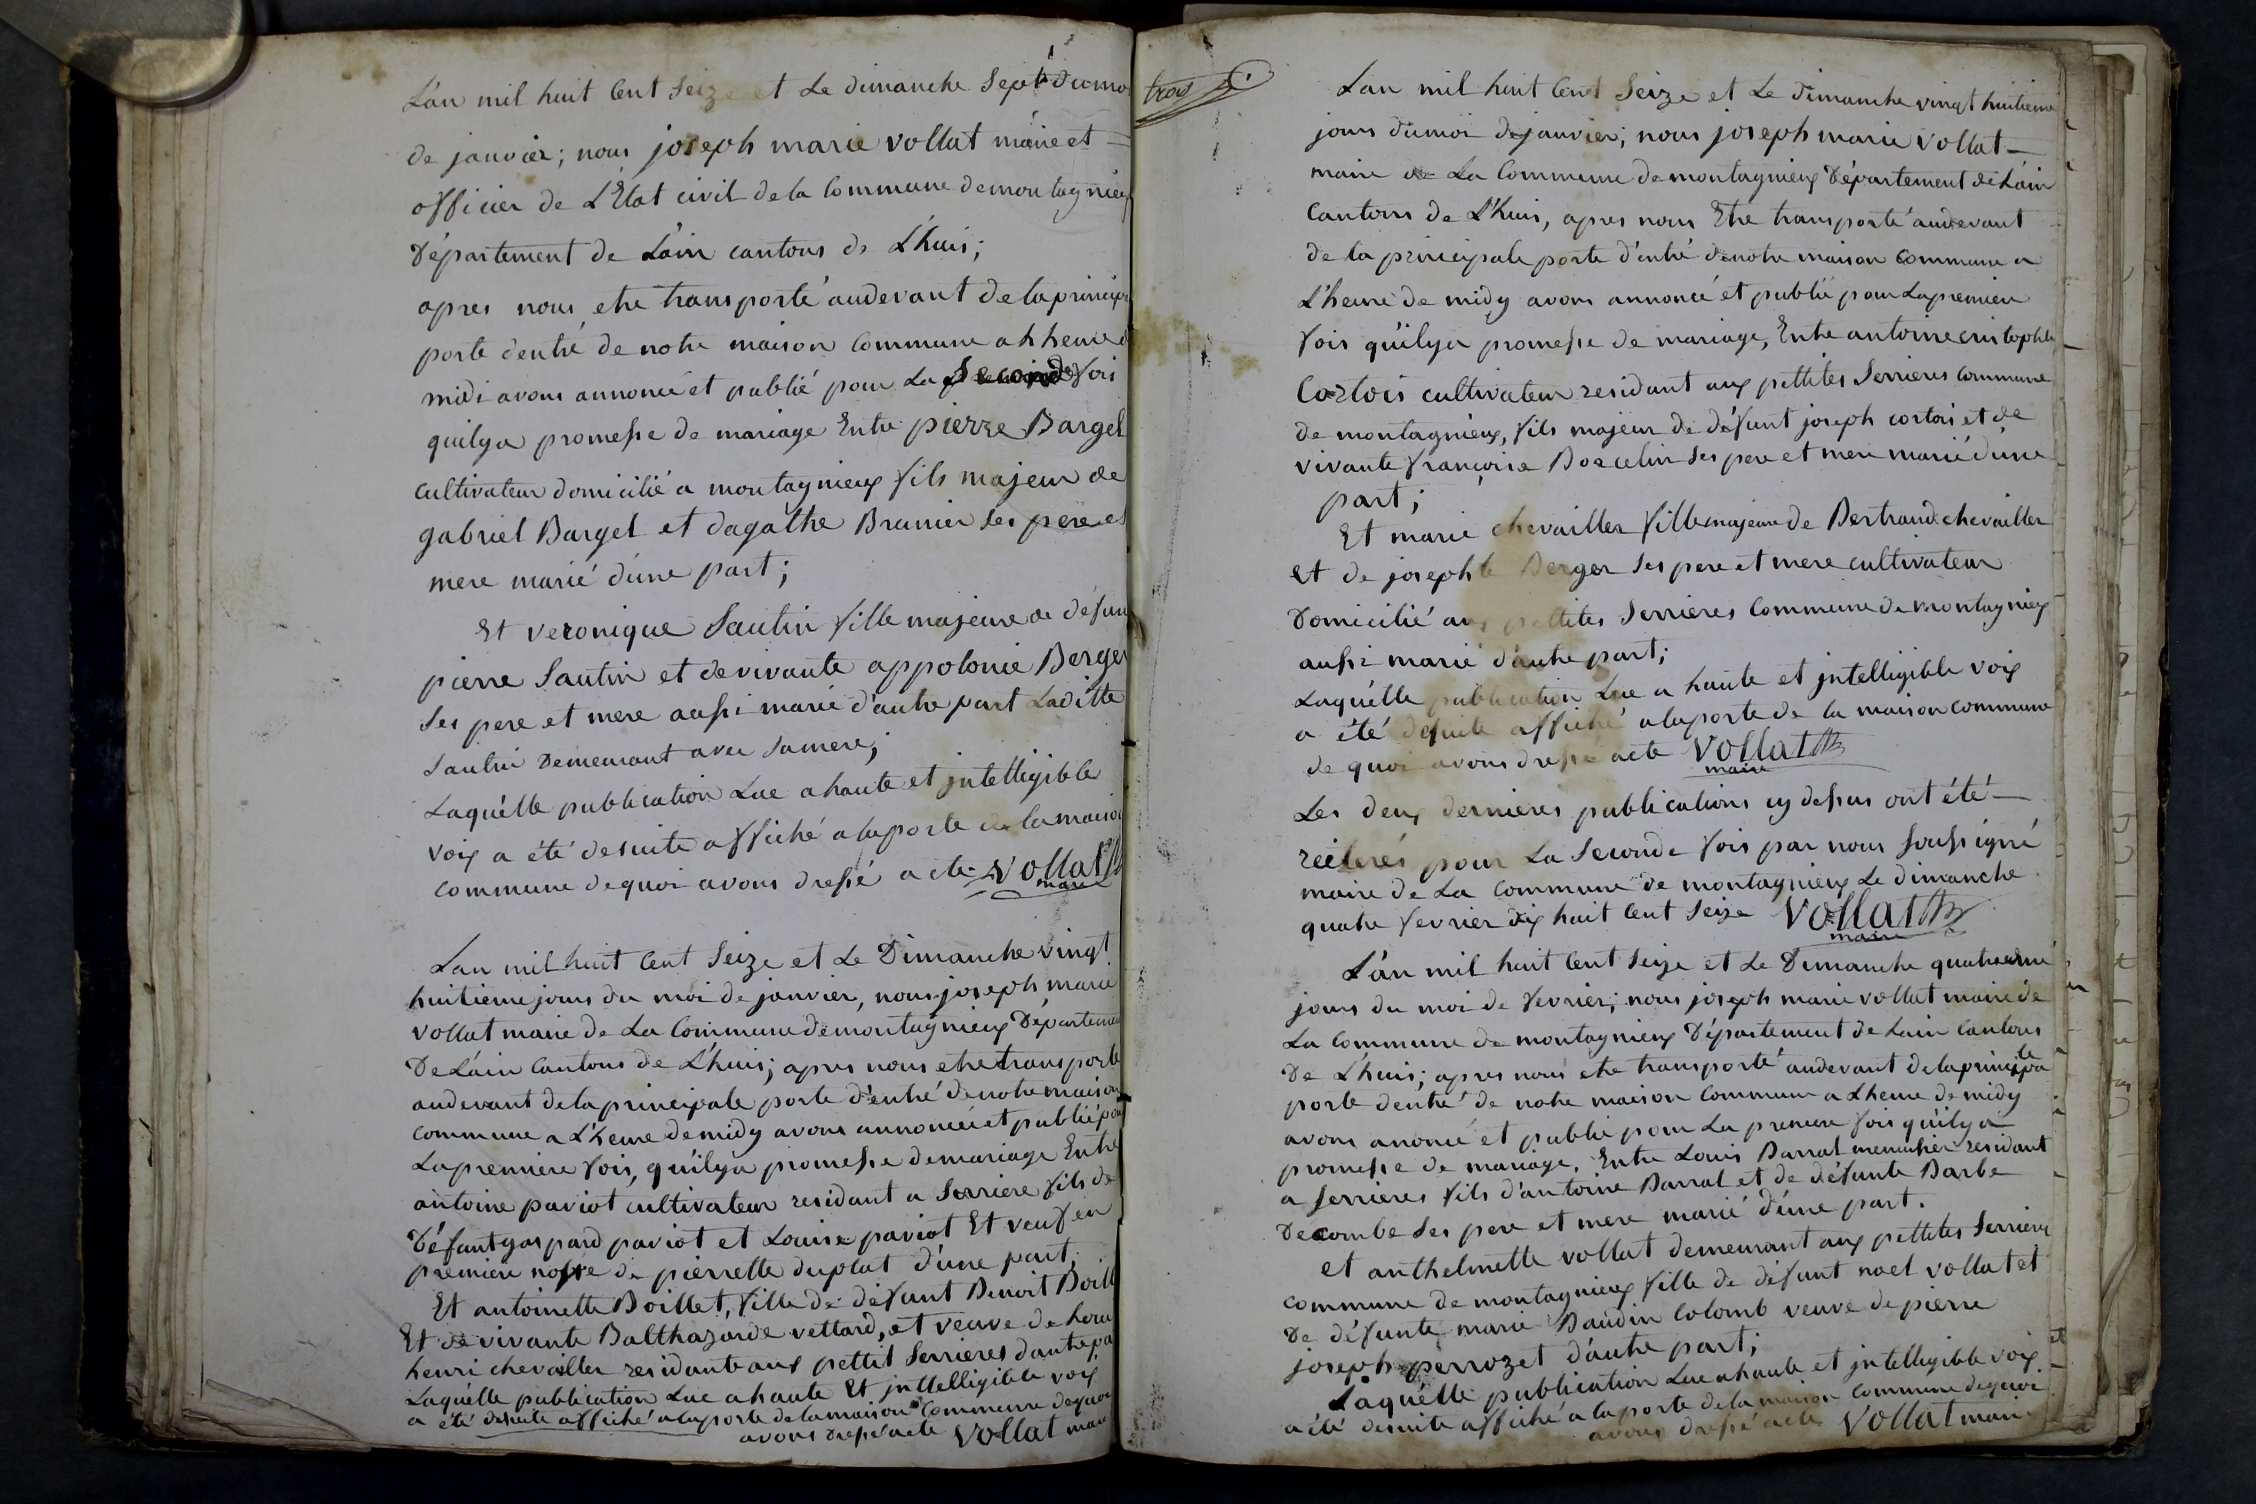 L'an mil huit Cent Seize et Le dimanche Sept du mo
de janvier; nous joseph marie vollat maire et
officier de L'Etat civil de la Commune de montagnieux
Département de L'ain cantons de L'huis;
apres nous etre transporté audevant de la princip
porte dentré de notre maison Commune a l'heure d
midi avons annoncé et publié pour La Seconde fois
quilya promesse de mariage Entre pierre Barget
cultivateur domicilié a montagnieux fils majeur de
gabriel Barget et dagathe Brunier ses pere et
mere marié d'une part;
Et veronique Sautin fille majeure de défun
pierre Sautin et de vivante appolonie Berger
ses pere et mere aussi marié d'autre part Laditte
Sautin Demeurant avec sa mere;
Laquélle publication Lue a haute et jntelligible
voix a été desuite affiché a laporte de la maison
commune de quoi avons dressé acte vollat
maire
Lan mil huit Cent Seize et Le Dimanche vingt
huitieme jours du moi de janvier, nous joseph marie
vollat maire de La Commune de montagnieux Departeme
De L'ain Cantons de L'huis; apres nous etre transporté
audevant de la principale porte d'entré de notre maison
commune a L'heure de midy avons annoncé et publié pou
La premiere fois, quilya promesse de mariage Entre
antoine paviot cultivateur residant a Serriere fils de
Défunt gaspard paviot et Louise paviot Et veuf en
premiere nosse de pierrette duplat d'une part;
Et antoinette Boillet, fille de défunt Benoit Boill
Et de vivante Balthazarde vettard, et veuve de
henri chevaller residante aux pettit Serrieres dautre pa
Laquélle publication Lue a haute Et jntelligible voix
a été desuite affiché a laporte de la maison Commune dequoi
avons dressé acte vollat maire
trois
Lan mil huit Cent Seize et Le Dimanche vingt huitieme
jours du moi de janvier; nous joseph marie vollat
maire de La Commune de montagnieux Département de L'ain
Cantons de L'huis, apres nous Etre transporté audevant
de la principale porte d'entré de notre maison Commune a
L'heure de midy avons annoncé et publié pour La premiere
fois quilya promesse de mariage, Entre antoine cristophle
Cortois cultivateur residant aux pettites Serrieres Commune
de montagnieux, fils majeur de défunt joseph cortois et de
vivante françoise Boscelin ses pere et mere marié d'une
part;
Et marie chevailler fille majeure de Bertrand chevailler
et de josephte Berger ses pere et mere cultivateur
Domicilié aux pettites Serrieres Commune de montagnieux
aussi marié d'autre part;
Laquélle publication Lue a haute et jntelligible voix
a été desuite affiché a laporte de la maison commune
de quoi avons dressé acte vollat
maire
Les deux dernieres publications cy dessus ont été
reiterés pour La Seconde fois par nous soussigné
maire de La Commune de montagnieux Le dimanche
quatre fevrier dix huit Cent Seize vollat
maire
L'an mil huit Cent Seize et Le Dimanche quatrieme
jours du moi de fevrier; nous joseph marie vollat maire de
La Commune de montagnieux Département de Lain Cantons
De L'huis; apres nous etre transporté audevant de la principale
porte dentré de notre maison Commune a L'heure de midy
avons anoncé et publié pour La premiere fois quilya
promesse de mariage. Entre Louis Barral menuisier residant
a Serrieres fils d'antoine Barral et de défunte Barbe
Decombe ses pere et mere marié d'une part.
et anthelmette vollat demeurant aux pettites Serrieres
commune de montagnieux fille de défunt noel vollat et
De défunte marie Baudin Colomb veuve de pierre
joseph perrozet d'autre part;
Laquélle publication Lue a haute et jntelligible voix
a été desuite affiché a la porte de la maison Commune dequoi
avons dressé acte vollat maire